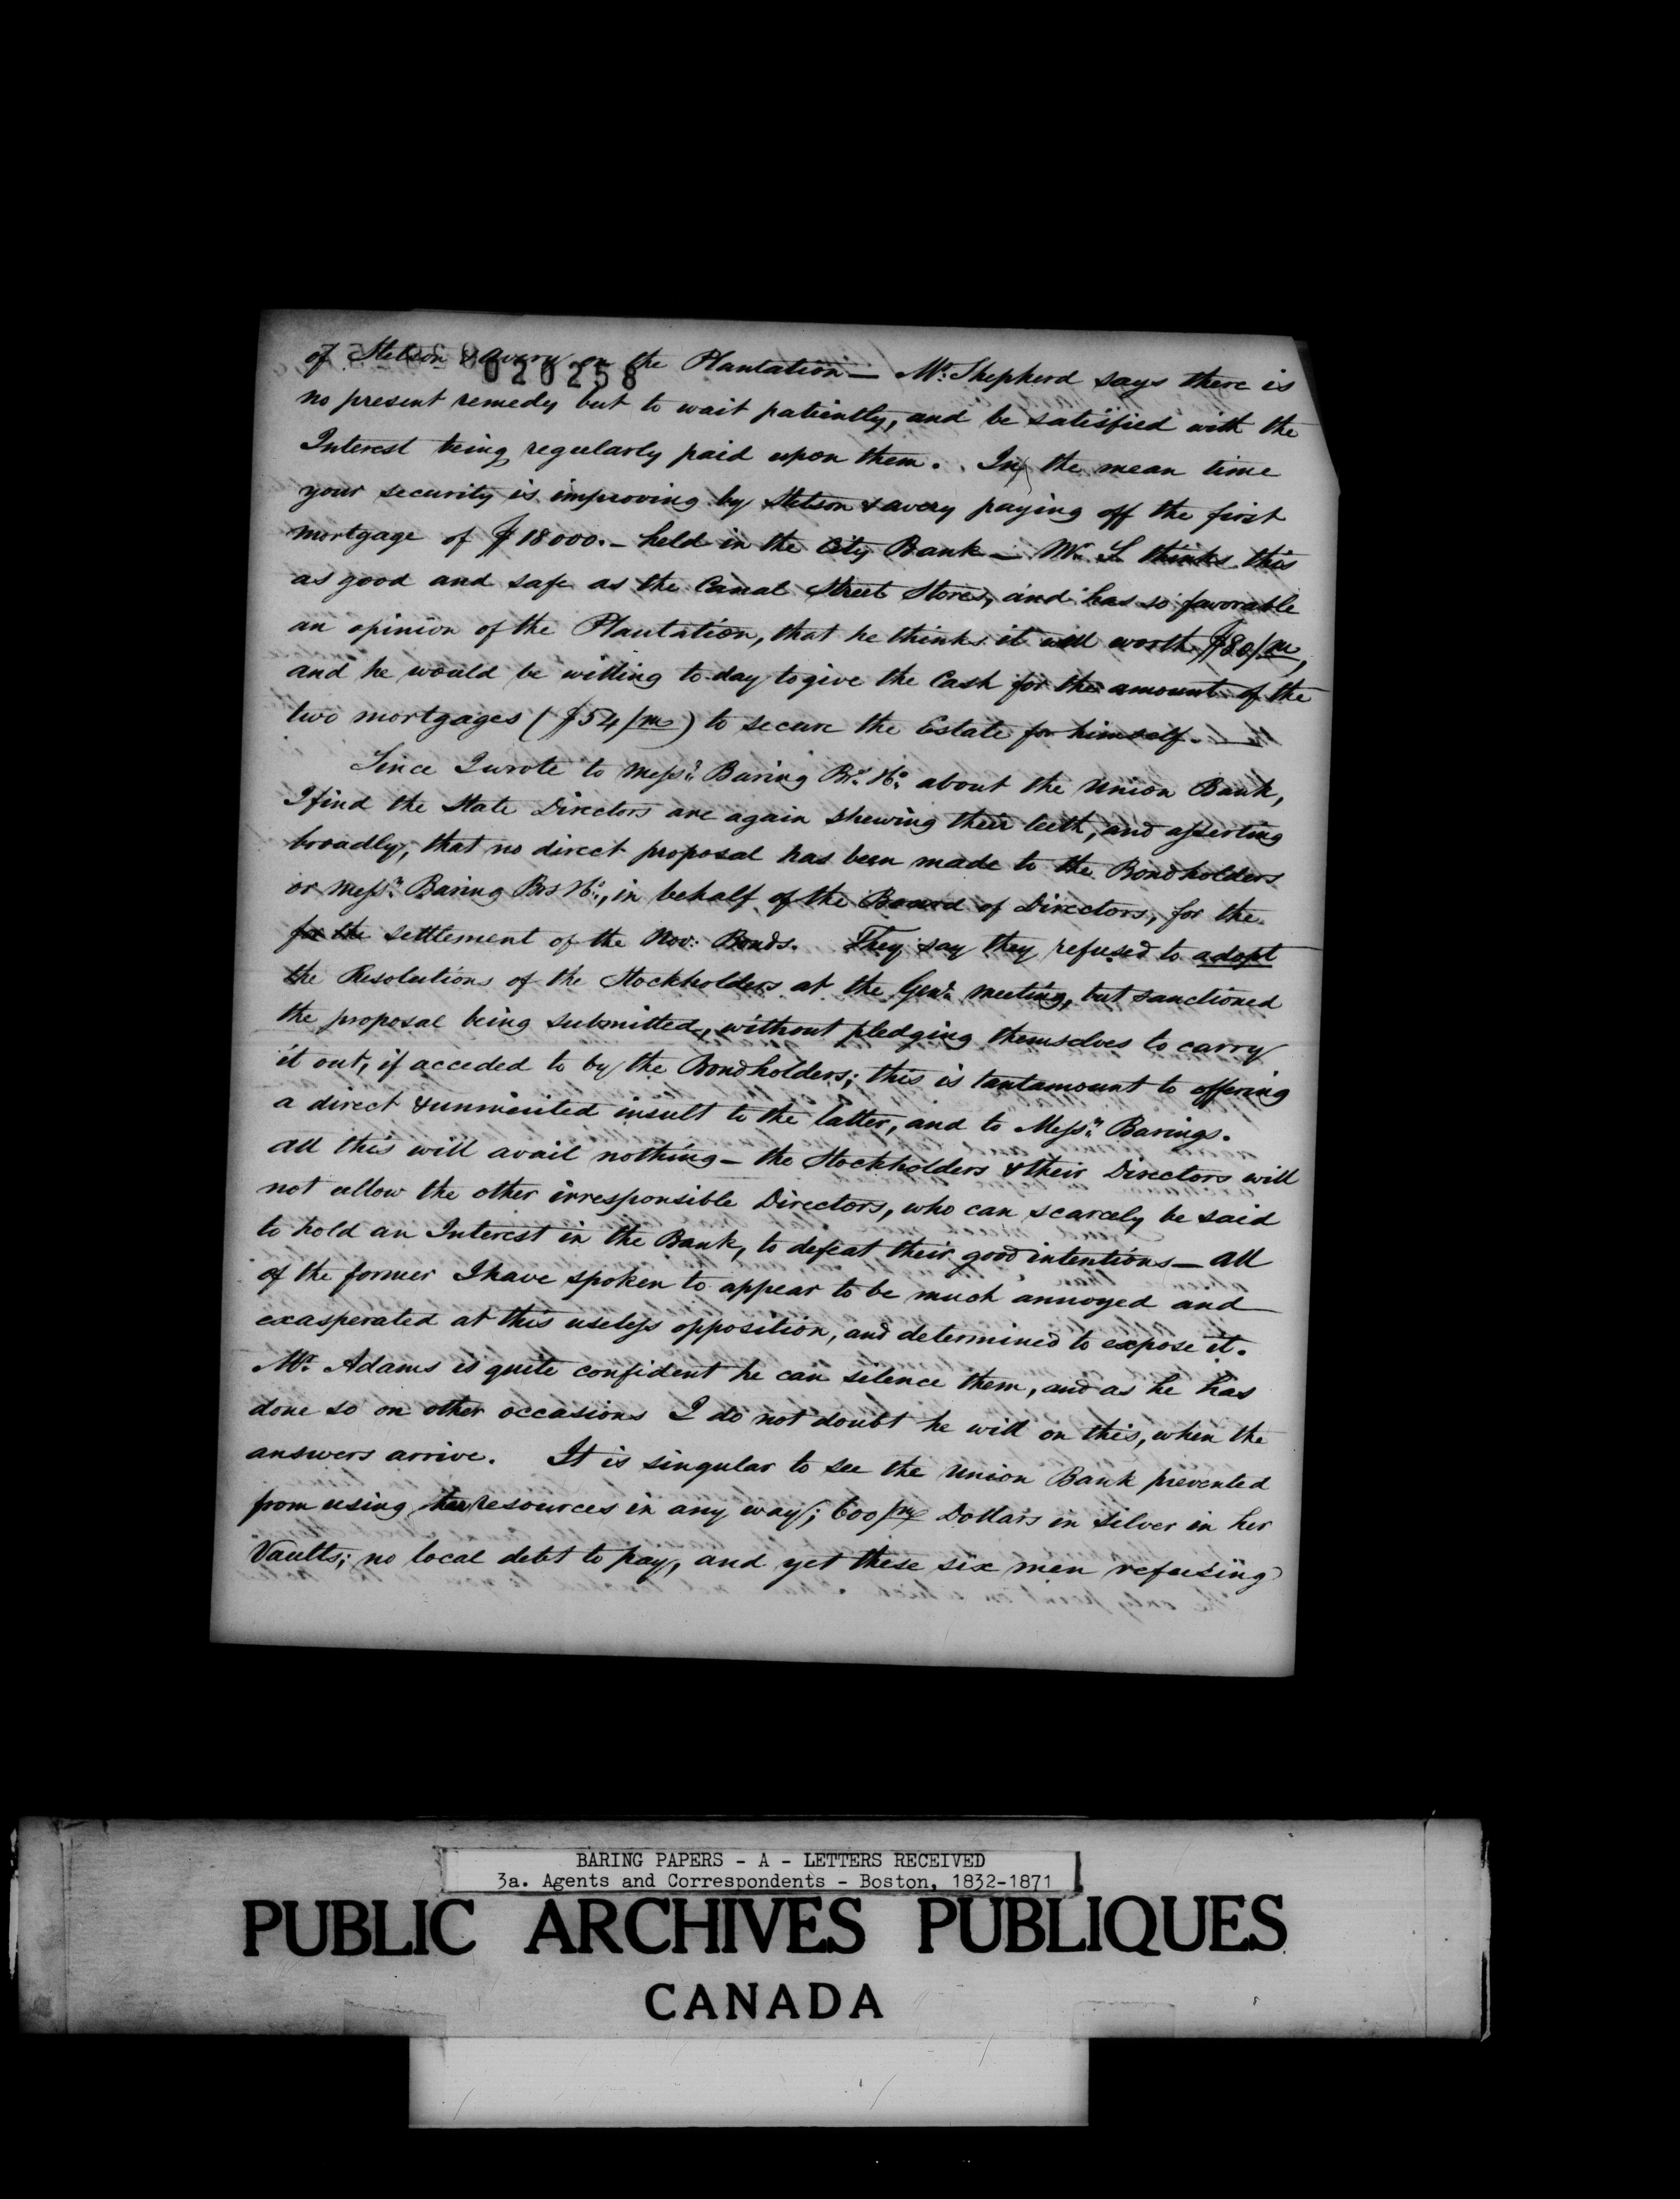 of Stetson & Avery on the Plantation — Mr. Shepherd says there is
020258
no present remedy but to wait patiently, and be satisfied with the
Interest being regularly paid upon them. In the mean time
your security is improving by Stetson & Avery paying off the first
mortgage of $18000.- held in the City Bank — Mr. S. thinks this
as good and safe as the Canal Street Stores, and has so favorable
an opinion of the Plantation, that he thinks it well worth $80/m,
and he would be willing to-day to give the Cash for the amount of the
two mortgages ($54/m) to secure the Estate for himself. —
Since I wrote to Messrs. Baring Brs. & Co. about the Union Bank,
I find the State Directors are again shewing their teeth, and asserting
broadly, that no direct proposal has been made to the Bondholders
or Messrs. Baring Brs & Co., in behalf of the Board of Directors, for the
for the settlement of the Nov: Bonds. They say they refused to adopt
the Resolutions of the Stockholders at the Genl. meeting, but sanctioned
the proposal being submitted, without pledging themselves to carry
it out, if acceded to by the Bondholders; this is tantamount to offering
a direct & unmerited insult to the latter, and to Messrs. Barings.
All this will avail nothing — the Stockholders & their Directors will
not allow the other irresponsible Directors, who can scarcely be said
to hold an Interest in the Bank, to defeat their good intentions — All
of the former I have spoken to appear to be much annoyed and
exasperated at this useless opposition, and determined to expose it.
Mr. Adams is quite confident he can silence them, and as he has
done so on other occasions I do not doubt he will on this, when the
answers arrive. It is singular to see the Union Bank prevented
from using her resources in any way; 600/m Dollars in silver in her
Vaults; no local debt to pay, and yet these six men refusing
BARING PAPERS - A - LETTERS RECEIVED
3a. Agents and Correspondents - Boston, 1832-1871
PUBLIC ARCHIVES PUBLIQUES
CANADA